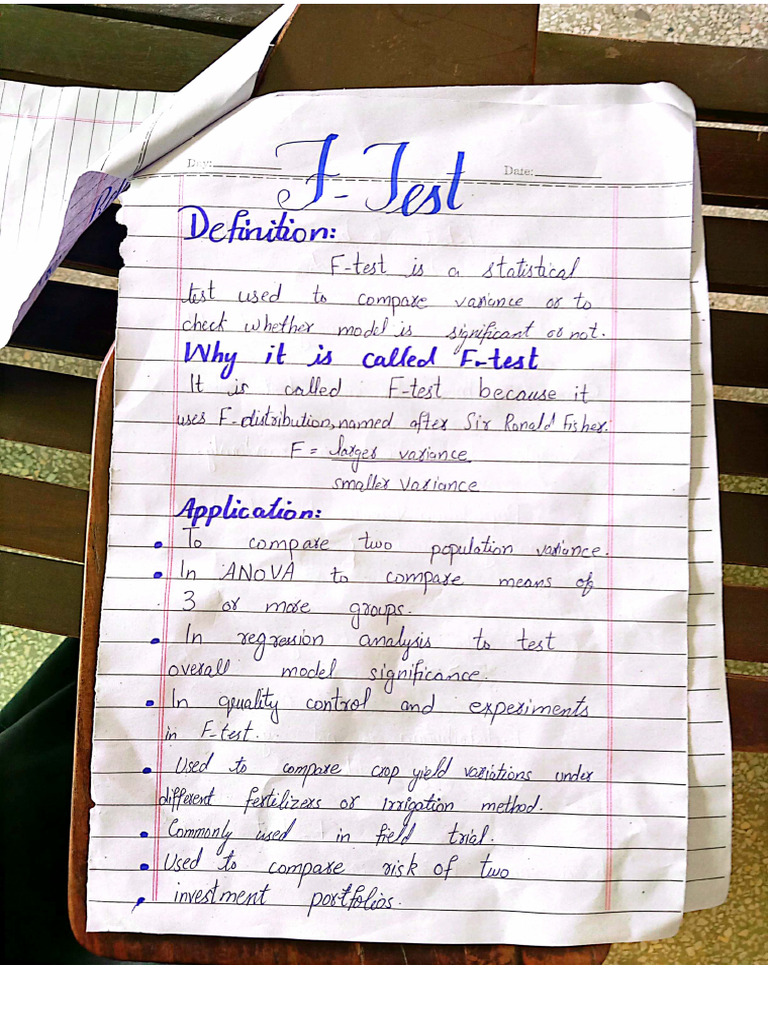 F-Test
Day:
Date:
Definition:
F-test is a statistical
test used to compare variance or to
check whether model is significant or not.
Why it is called F-test
It is called F-test because it
uses F-distribution, named after Sir Ronald Fisher.
F = larger variance
smaller variance
Application:
• To compare two population variance.
• In ANOVA to compare means of
3 or more groups.
• In regression analysis to test
overall model significance.
• In quality control and experiments
in F-test.
• Used to compare crop yield variations under
different fertilizers or irrigation method.
• Commonly used in field trial.
• Used to compare risk of two
• investment portfolios.